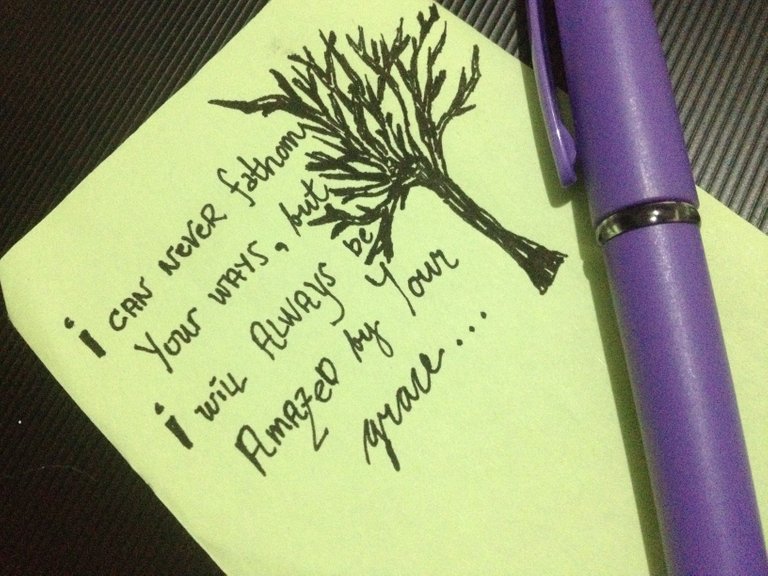 i CAN NEVER fathom
Your WAYS, but
i will ALWAYS be
AMAZED by Your
grace....